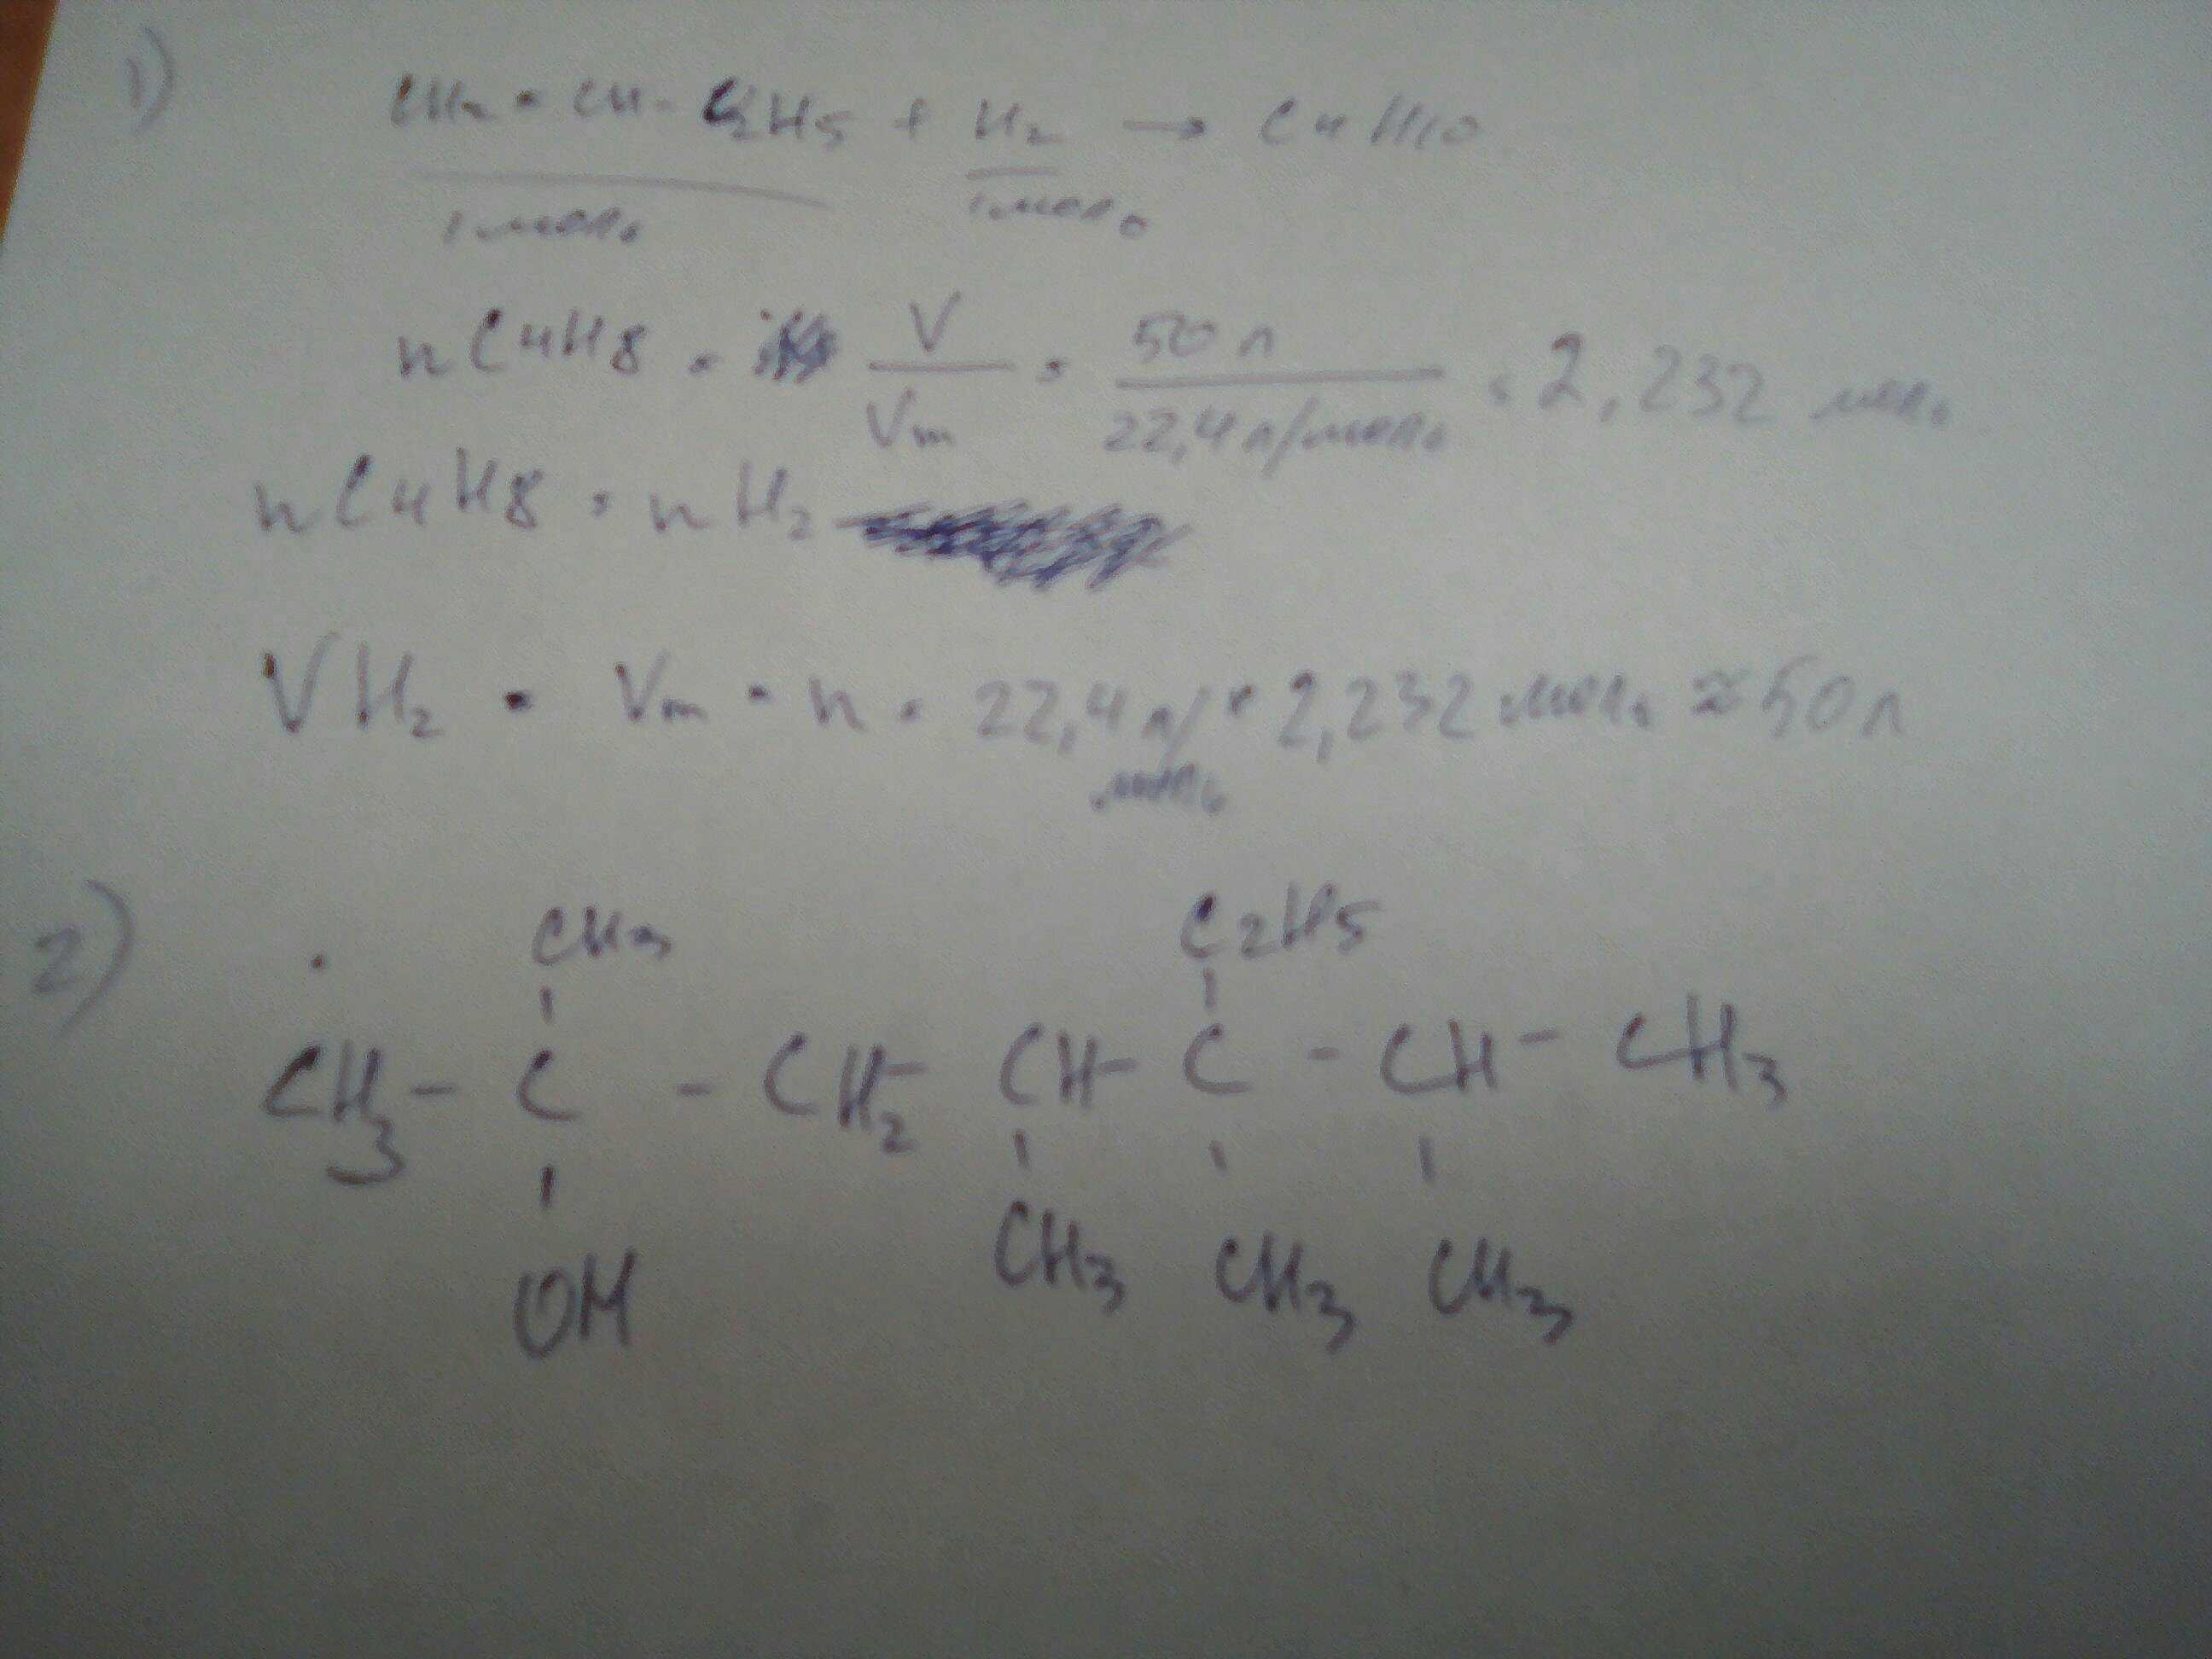 1)
CH2 = CH - C2H5 + H2 → C4H10
1 моль 1 моль
nC4H8 = V / Vm = 50 л / 22,4 л/моль = 2,232 моль
nC4H8 = nH2
VH2 = Vm · n = 22,4 л/моль * 2,232 моль ≈ 50 л
2)
CH3 C2H5
CH3 - C - CH2 - CH - C - CH - CH3
OH CH3 CH3 CH3